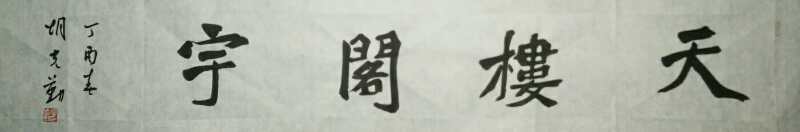 天樓閣宇
丁酉春
胡克勤